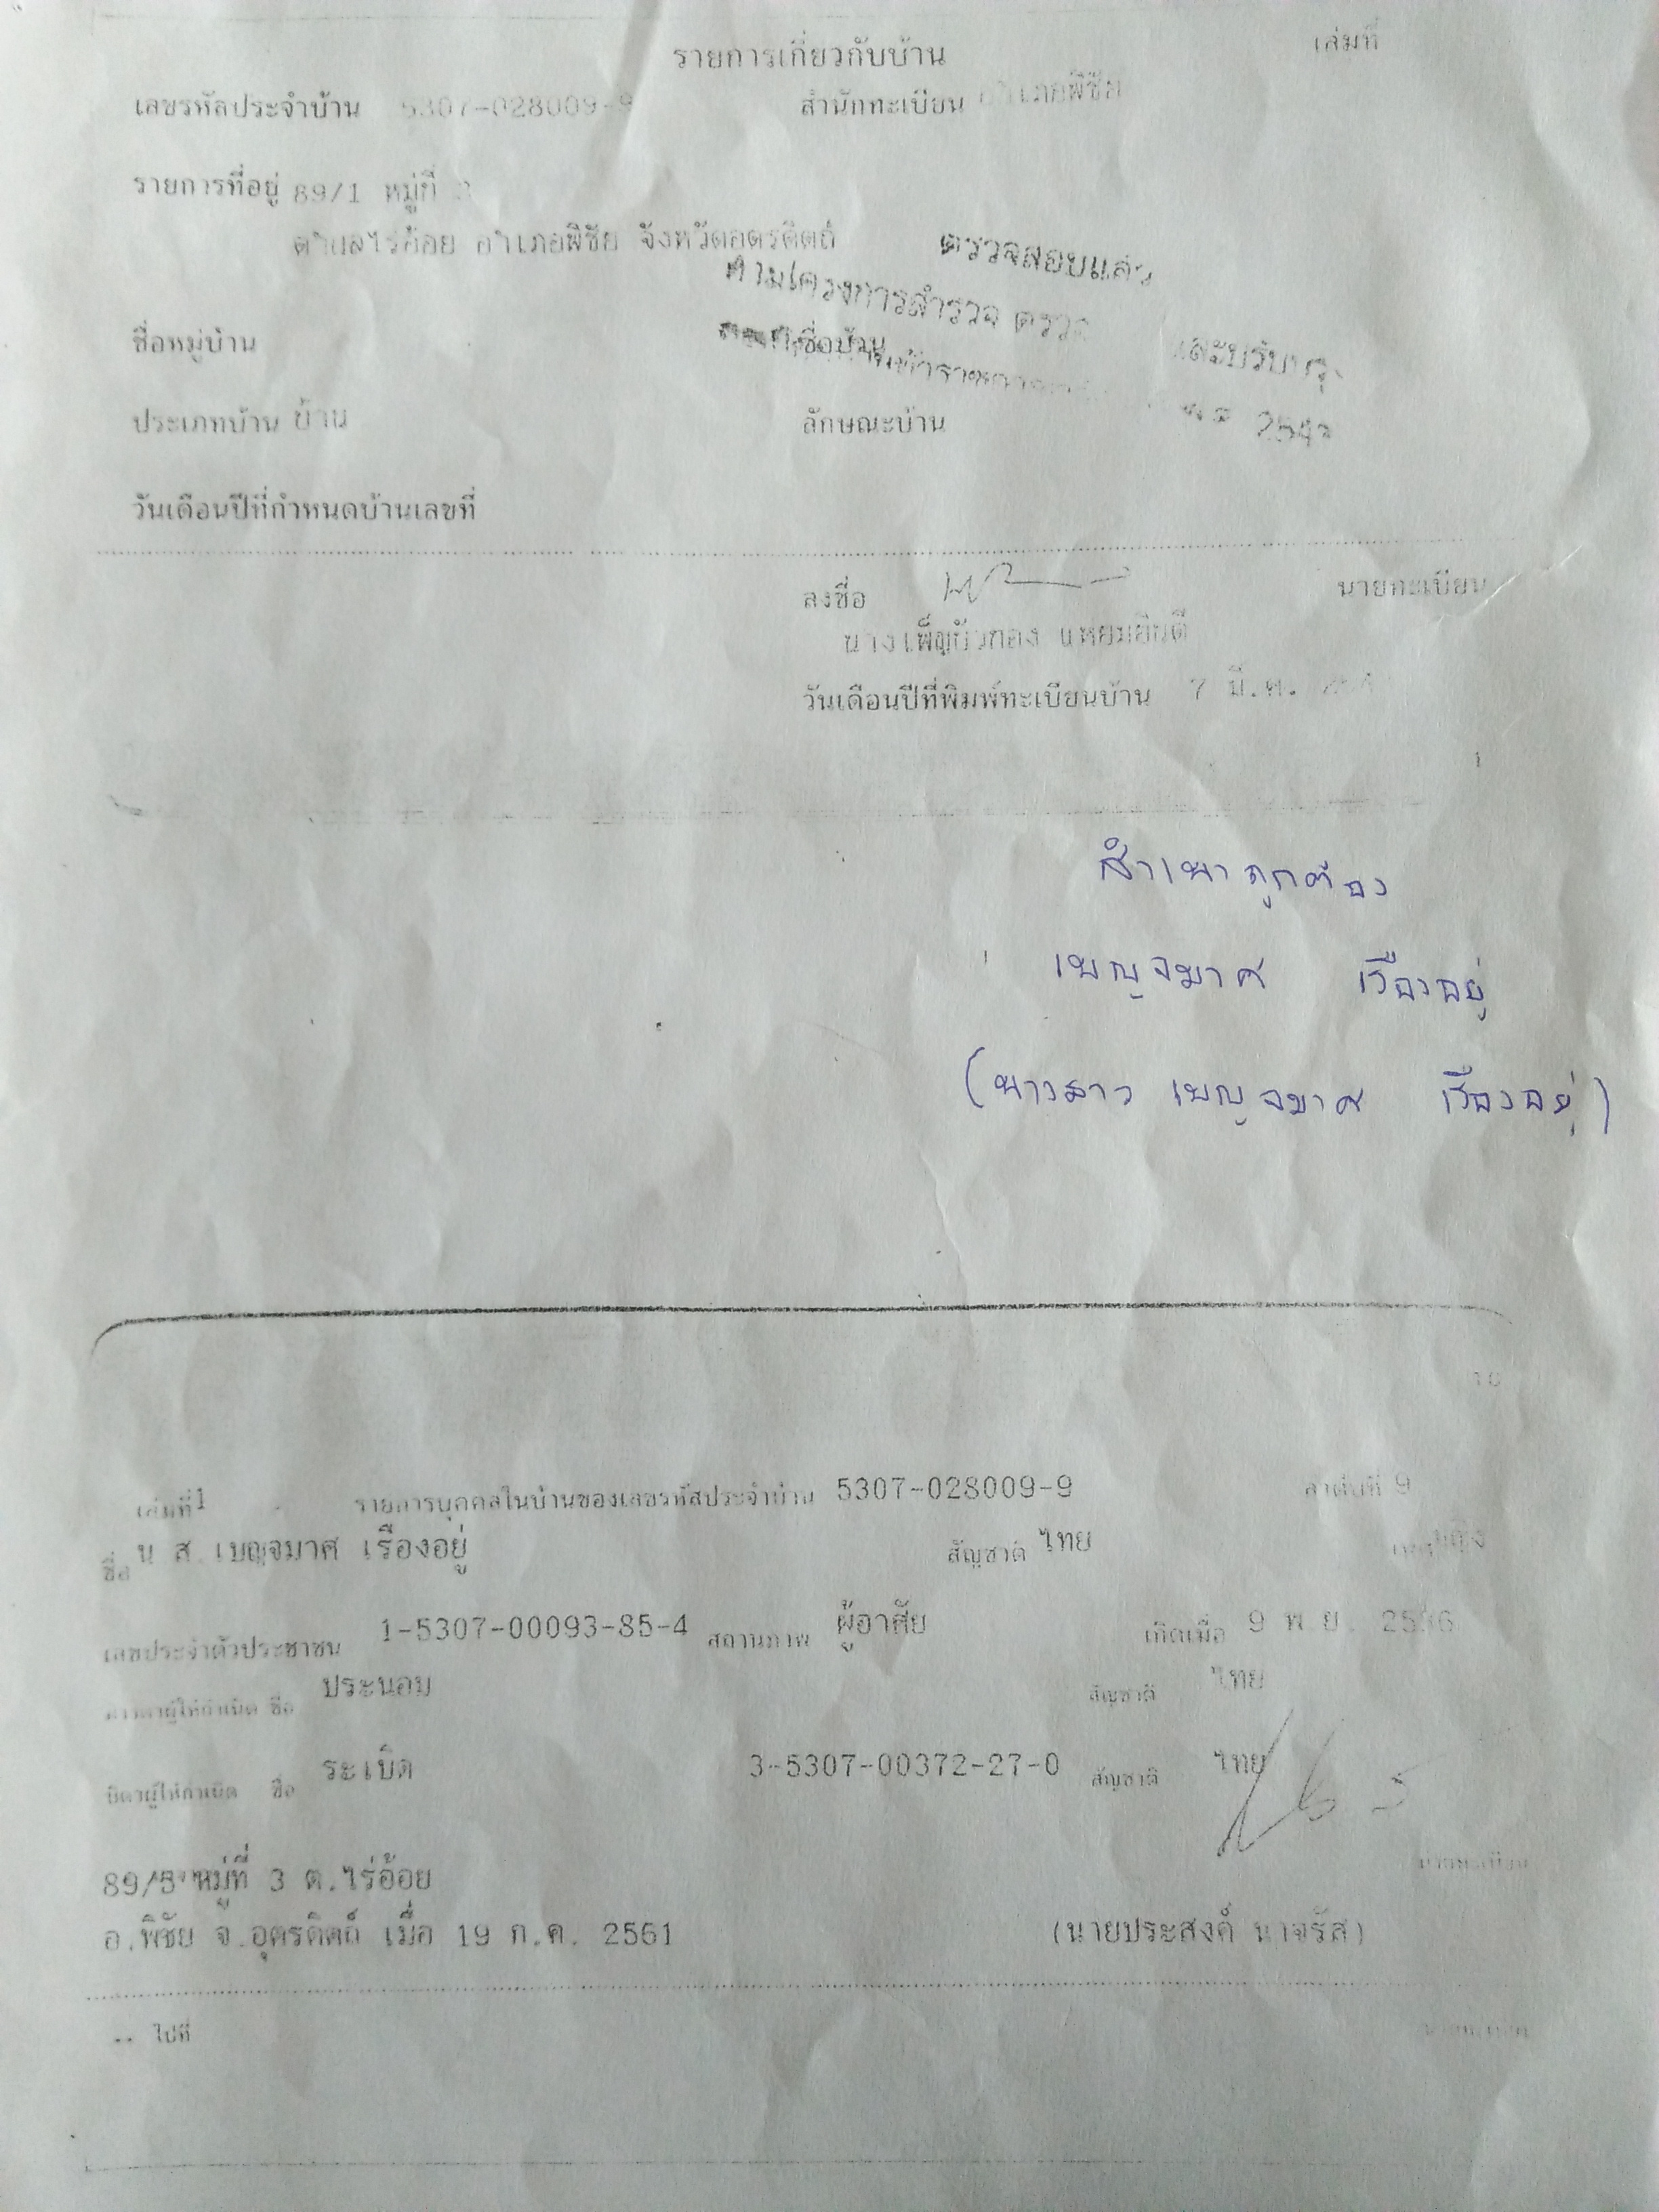 รายการเกี่ยวกับบ้าน เล่มที่
เลขรหัสประจำบ้าน 5307-028009-9 สำนักทะเบียน อำเภอพิชัย
รายการที่อยู่ 89/1 หมู่ที่ 3
ตำบลไร่อ้อย อำเภอพิชัย จังหวัดอุตรดิตถ์
ตรวจสอบแล้ว
ตามโครงการสำรวจ ตรวจ และปรับปรุง
ชื่อหมู่บ้าน ชื่อบ้าน
ประเภทบ้าน บ้าน ลักษณะบ้าน
วันเดือนปีที่กำหนดบ้านเลขที่
ลงชื่อ นายทะเบียน
นางเพ็ญบัวทอง แหยมยินดี
วันเดือนปีที่พิมพ์ทะเบียนบ้าน 7 มี.ค.
1
สำเนาถูกต้อง
เบญจมาศ เรืองอยู่
(นางสาว เบญจมาศ เรืองอยู่)
10
เล่มที่ 1 รายการบุคคลในบ้านของเลขรหัสประจำบ้าน 5307-028009-9 ลำดับที่ 9
ชื่อ น.ส. เบญจมาศ เรืองอยู่ สัญชาติ ไทย เพศ หญิง
เลขประจำตัวประชาชน 1-5307-00093-85-4 สถานภาพ ผู้อาศัย เกิดเมื่อ 9 พ.ย. 2536
มารดาผู้ให้กำเนิด ชื่อ ประนอม สัญชาติ ไทย
บิดาผู้ให้กำเนิด ชื่อ ระเบิด 3-5307-00372-27-0 สัญชาติ ไทย
นายทะเบียน
89/5 หมู่ที่ 3 ต.ไร่อ้อย
อ.พิชัย จ.อุตรดิตถ์ เมื่อ 19 ก.ค. 2561 (นายประสงค์ นาจรัส)
.. ไปที่ นายทะเบียน